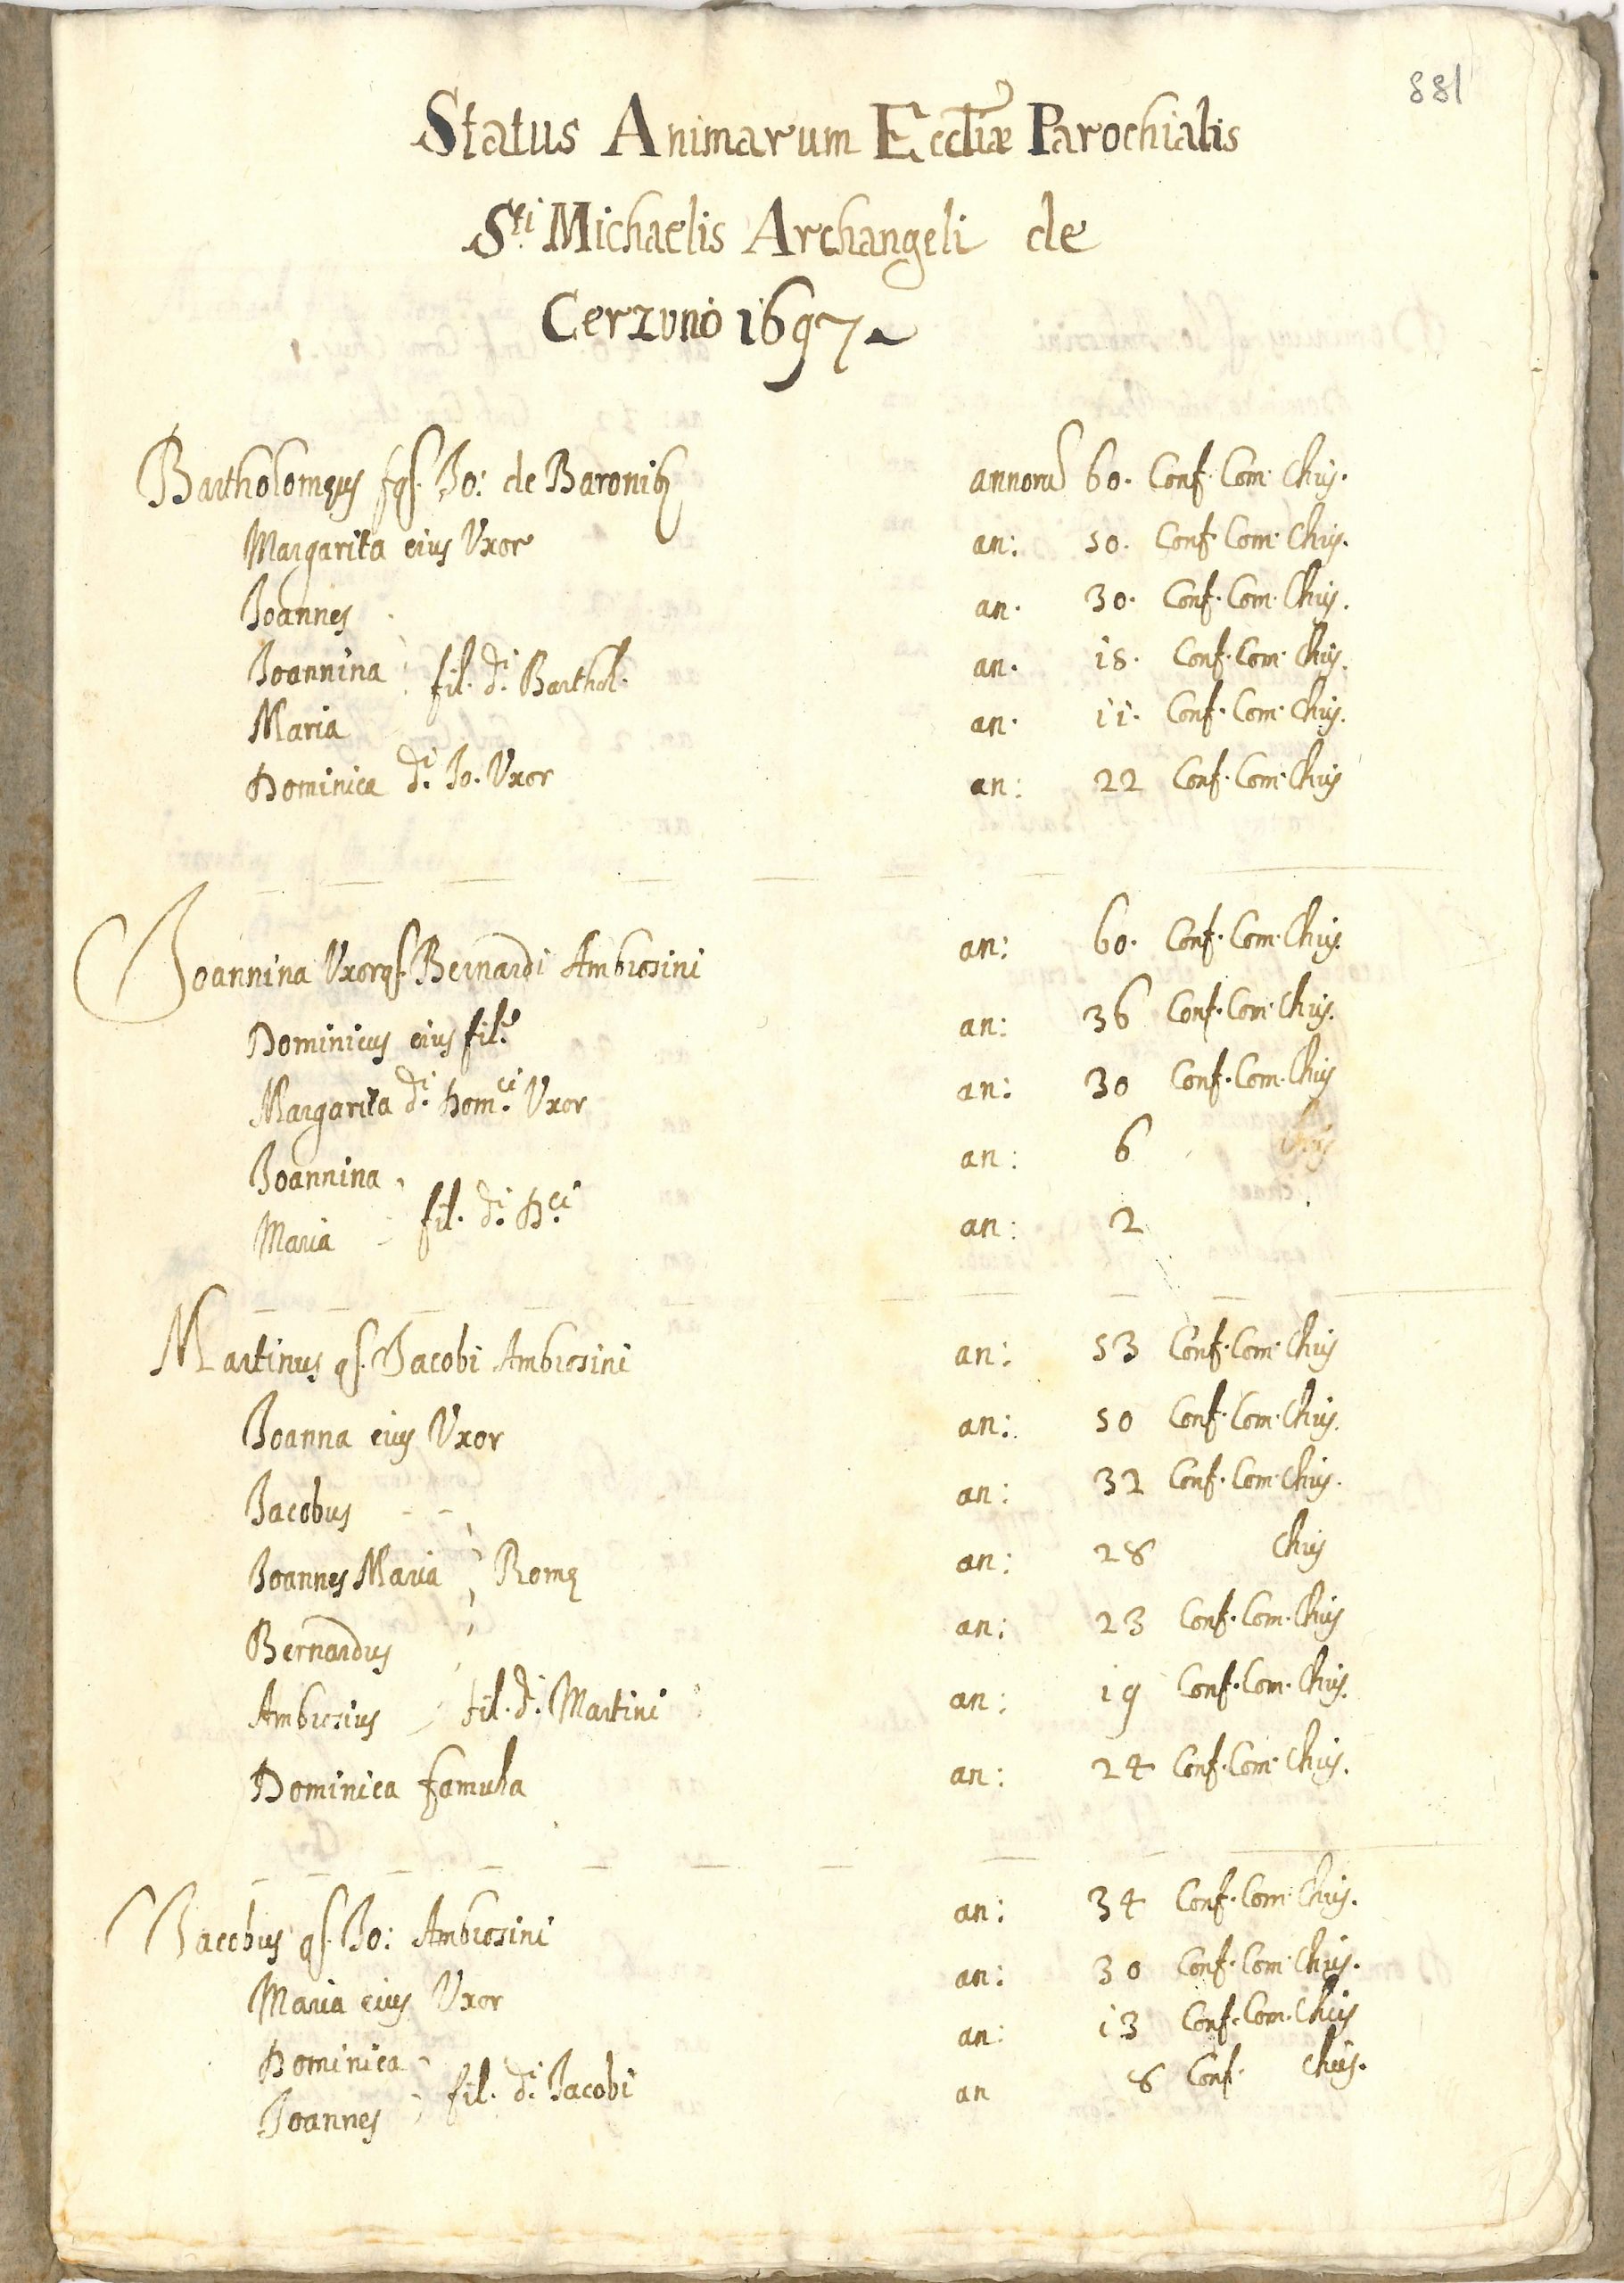 881
Status Animarum Eccliæ Parochialis
Sti Michaelis Archangeli de
Cerzuno 1697
Bartholomęus fqs. Jo: de Baronibq annorũ 60. Conf. Com. Chrs.
Margarita eius Uxor an: 50. Conf. Com. Chrs.
Joannes an. 30. Conf. Com. Chrs.
Joannina an. 18. Conf. Com. Chrs.
fil. di. Barthol.
Maria an. 11. Conf. Com. Chrs.
Dominica di. Jo. Uxor an: 22 Conf. Com. Chrs
Joannina Uxor qs. Bernardi Ambrosini an: 60. Conf. Com. Chrs.
Dominicus eius fil.s an: 36 Conf. Com. Chrs.
Margarita di. Dom.ci Uxor an: 30 Conf. Com. Chrs
Joannina an: 6 Chrs
fil. di. D.ci
Maria an: 2
Martinus qs. Jacobi Ambrosini an: 53 Conf. Com. Chrs
Joanna eius Uxor an: 50 Conf. Com. Chrs.
Jacobus an: 32 Conf. Com. Chrs.
Joannes Maria Romę an: 28 Chrs
Bernardus an: 23 Conf. Com. Chrs
Ambrosius fil. di. Martini an: 19 Conf. Com. Chrs.
Dominica famula an: 24 Conf. Com. Chrs.
Jacobus qs. Jo: Ambrosini an: 34 Conf. Com. Chrs.
Maria eius Uxor an: 30 Conf. Com. Chrs.
Dominica an: 13 Conf. Com. Chrs
fil. di. Jacobi
Joannes an 8 Conf. Chrs.